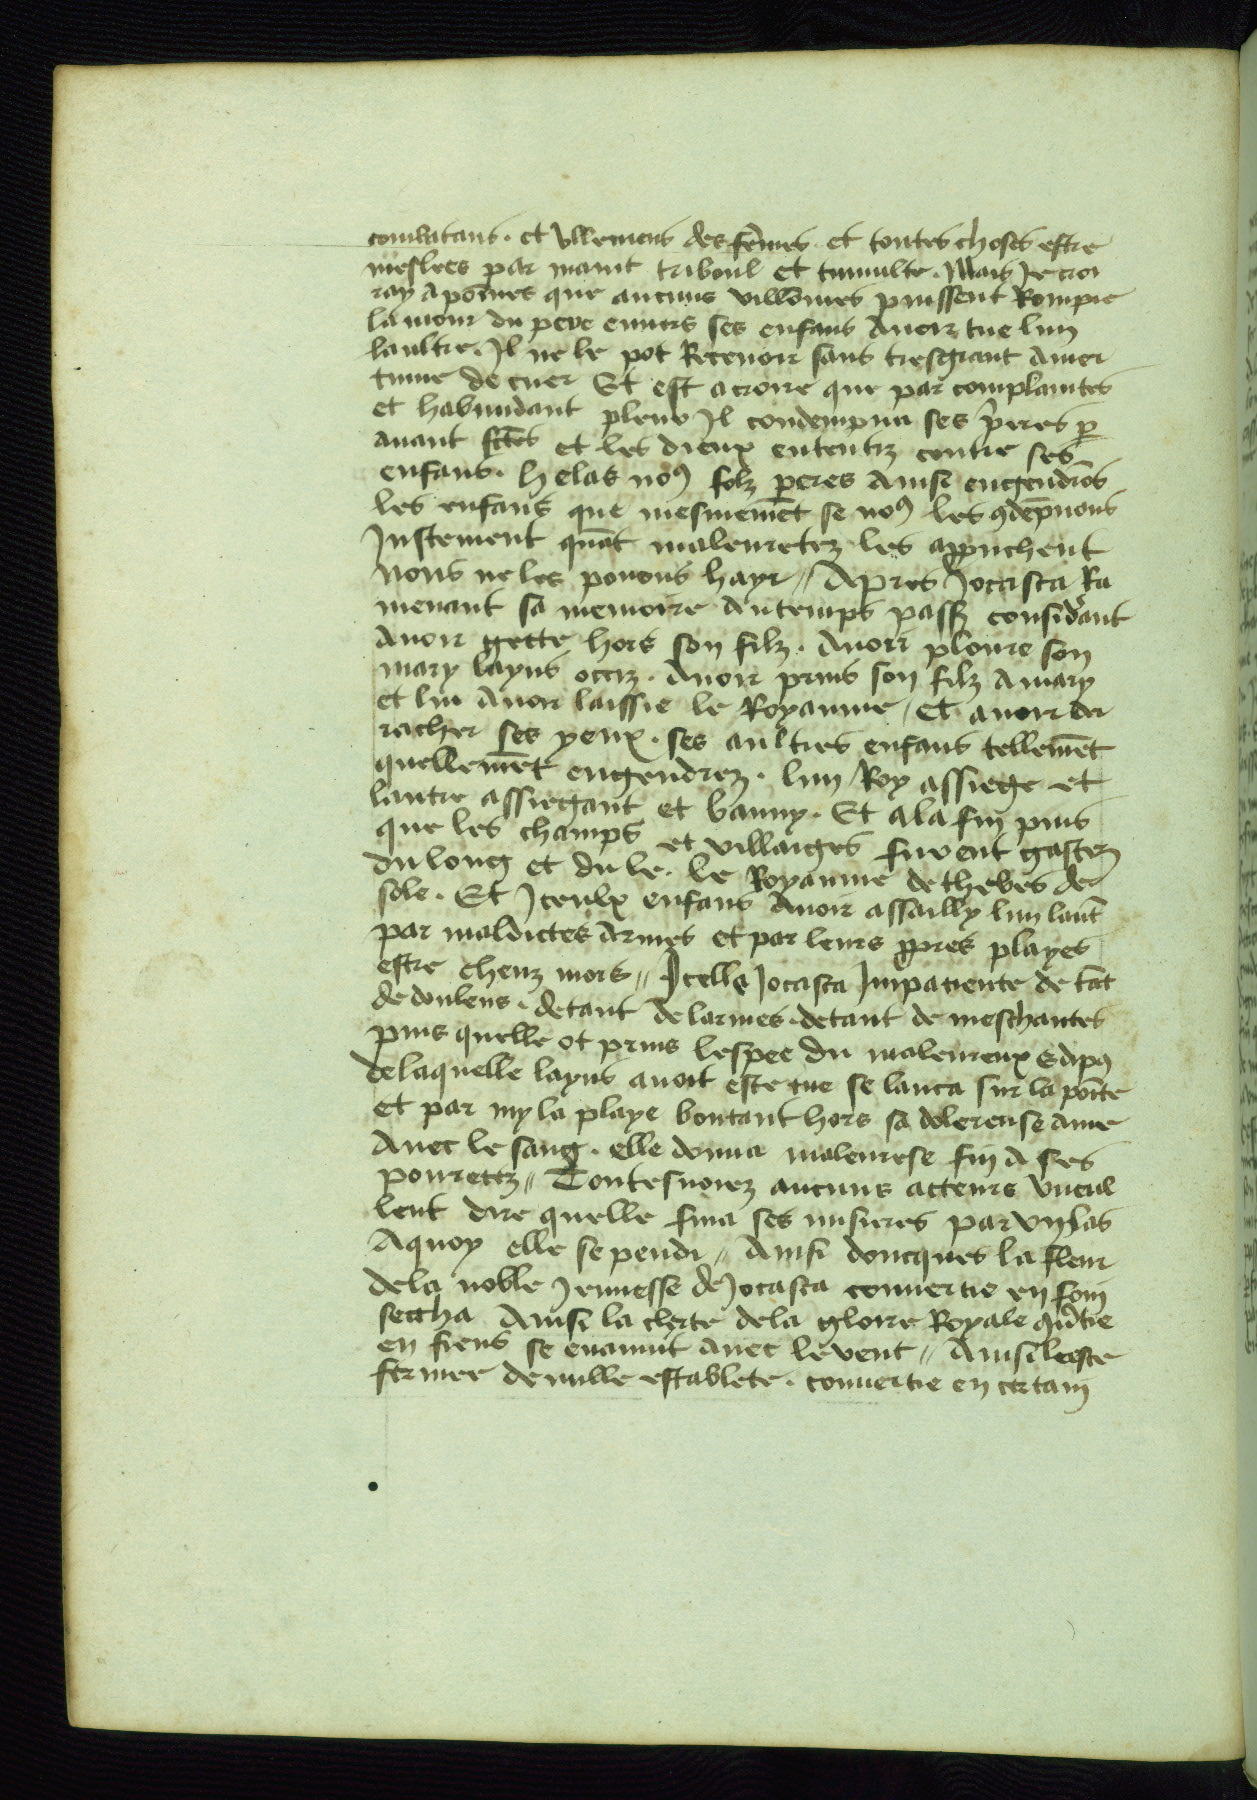 combatans. et Vllemens des fēmes et toutes choses estre
meslees par maint triboul et tumulte. Mais Je croi
ray a poines que aucuns villōmes puissent Rompre
lamour du pere enuers ses enfans Auoir tue lun
laultre. Il ne le pot Receuoir sans tresgrant Amer
tume de cuer Et est a croire que par complaintes
et habundant pleur Il condempna ses p̄eres p̱
auant fctēs et les dieux ententiz contre ses
enfans. helas noꝰ folz peres Ainsi engendrōs
les enfans que mesmemēt se noꝰ les ꝯdēpnons
Justement quāt maleuretez les appͬchent
Nous ne les pouons hayr // Apres Jocasta Ra
menant sa memoire Au temps passe considͬant
Auoir gette hors son filz. Auoir ploure son
mary layus occiz. Auoir prins son filz A mary
et lui Auoir laissie le Royaume / Et auoir der
racher ses yeux. ses aultres enfans tellemēt
quellemēt engendrez. lun Roy assiege et
lautre assiegant et banny. Et a la fin puis
que les champs et villaiges furent gastez
du long et du le. le Royaume de thebes de
sole. Et Jceulx enfans Auoir assailly lun laut̄
par maldictes Armes et par leurs ꝓpres playes
estre cheuz mors // Jcelle Jocasta Jmpatiente de tāt
de douleus. de tant de larmes. de tant de meschantes
puis quelle ot prins lespee du maleureux Edipꝰ
de laquelle layus auoit este tue se lanca sur la poīte
et par my la playe boutant hors sa dolereuse ame
Auec le sang. elle donna maleurese fin A ses
pouretez // Toutesuoiez aucuns acteurs Vueil
lent dire quelle fina ses miseres par Vng las
A quoy elle se pendi // Ainsi doncques la fleur
de la noble Jeunesse de Jocasta conuertie en foin
seccha Ainsi la clerte de la gloire Royale ꝯūtie
en fiens se euanuit Auec le vent // Ainsi leesce
fermee de nulle establete. conuertie en certain